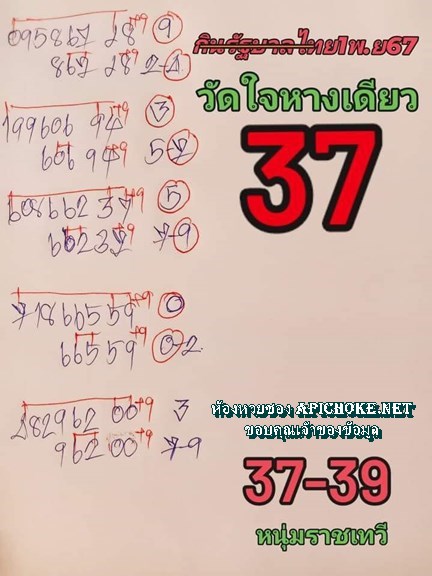 กินรัฐบาลไทย1พ.ย67
วัดใจหางเดียว
37
095867 28 +9 9
867 28 +9 2-1
199606 94 +9 3
606 94 +9 5-2
608662 37 +9 5
662 37 7-9
7186655 59 +9 0
665 59 +9 0-2
282962 00 +9 3
962 00 +9 7-9
ห้องหวยซอง APICHOKE.NET
ขอบคุณเจ้าของข้อมูล
37-39
หนุ่มราชเทวี